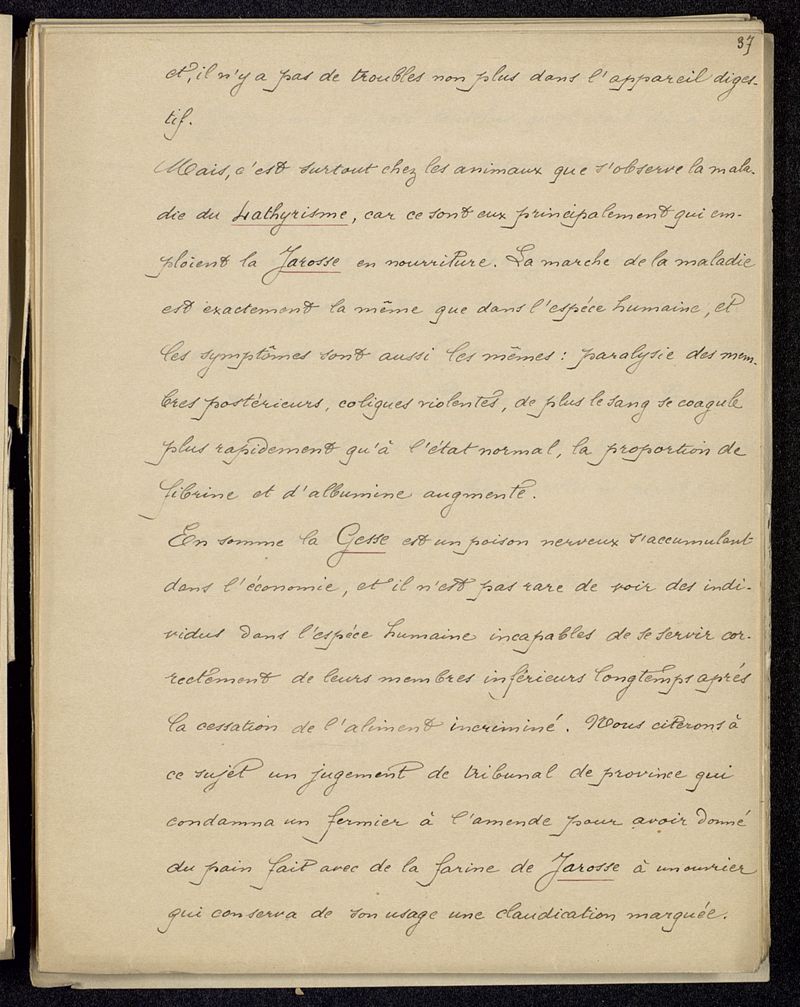 37
et, il n'y a pas de troubles non plus dans l'appareil diges-
tif.
Mais, c'est surtout chez les animaux que s'observe la mala-
die du Lathyrisme, car ce sont eux principalement qui em-
ploient la Jarosse en nourriture. La marche de la maladie
est exactement la même que dans l'espéce humaine, et
les symptômes sont aussi les mêmes : paralysie des mem-
bres postérieurs, coliques violentes, de plus le sang se coagule
plus rapidement qu'à l'état normal, la proportion de
fibrine et d'albumine augmente.
En somme la Gesse est un poison nerveux s'accumulant
dans l'économie, et il n'est pas rare de voir des indi-
vidus dans l'espéce humaine incapables de se servir cor-
rectement de leurs membres inférieurs longtemps aprés
la cessation de l'aliment incriminé. Nous citerons à
ce sujet un jugement de tribunal de province qui
condamna un fermier à l'amende pour avoir donné
du pain fait avec de la farine de Jarosse à un ouvrier
qui conserva de son usage une claudication marquée.